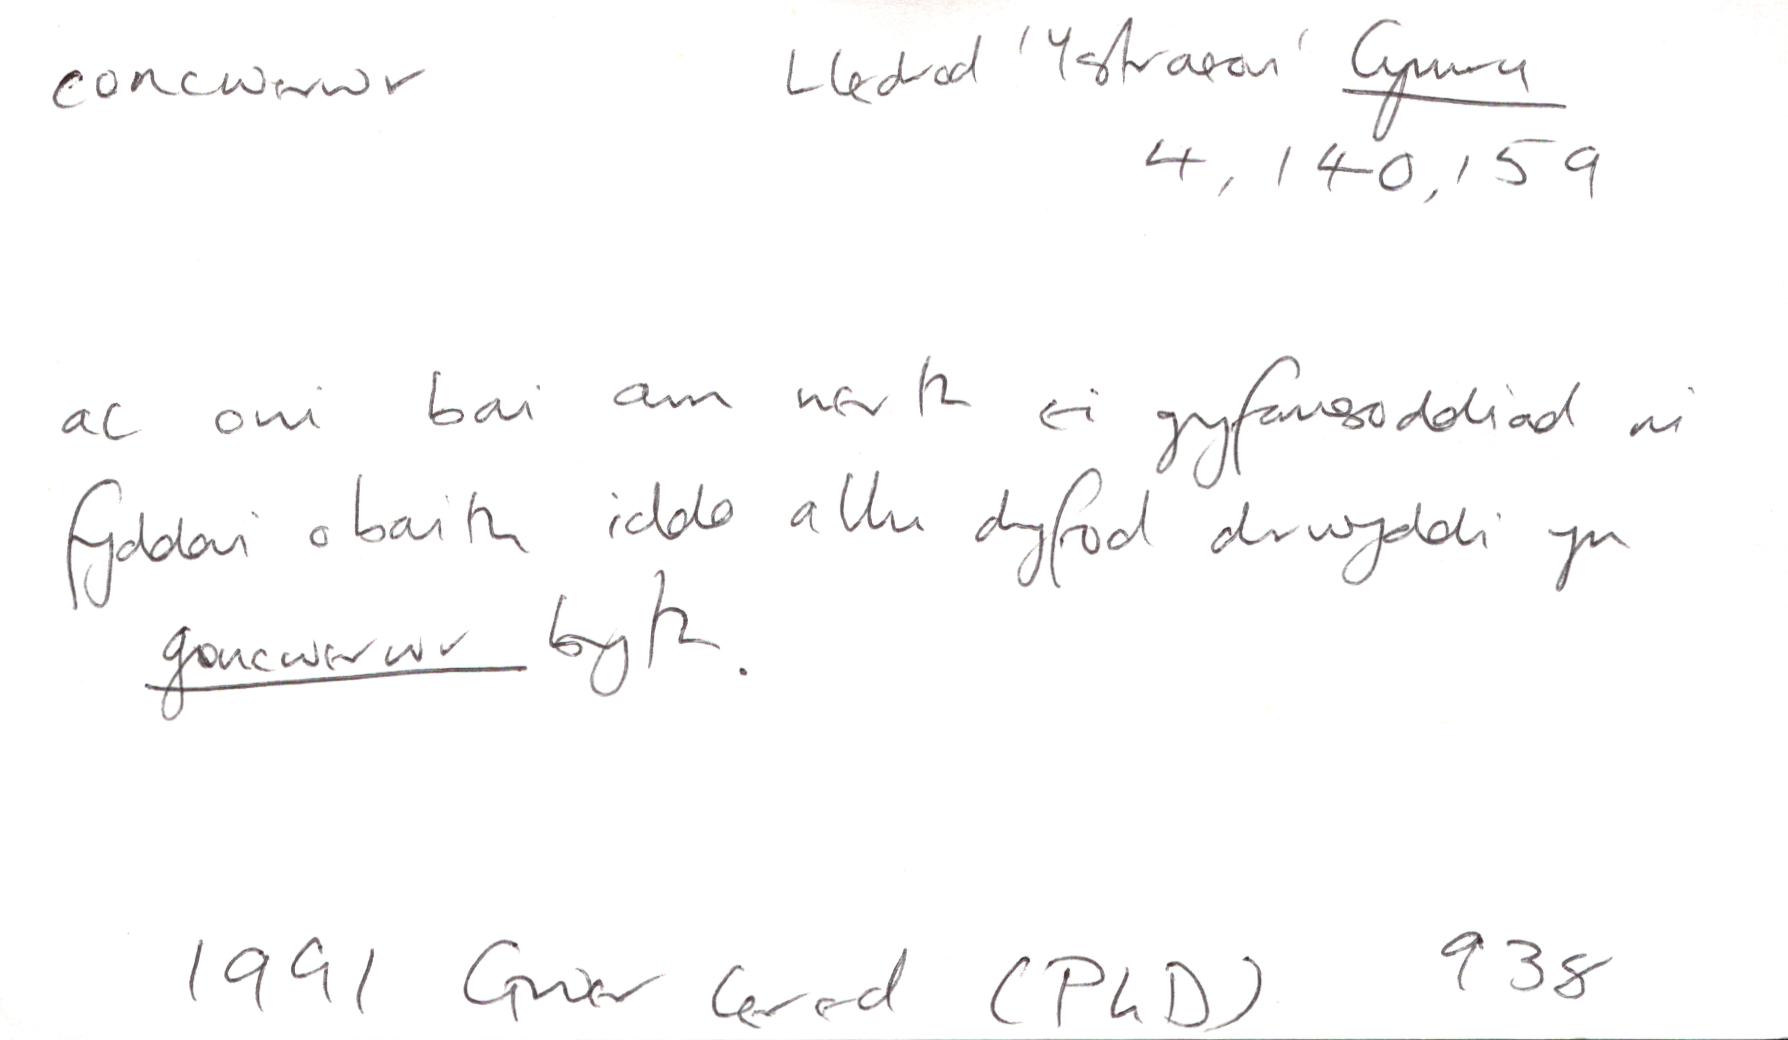 concwerwr
Lledrod 'Ystraeon' Cymru
4, 140, 159
ac oni bai am nerth ei gyfansoddiad ni
fyddai obaith iddo allu dyfod drwyddi yn
goncwerwr byth.
1991 Gwier (PhD) 938